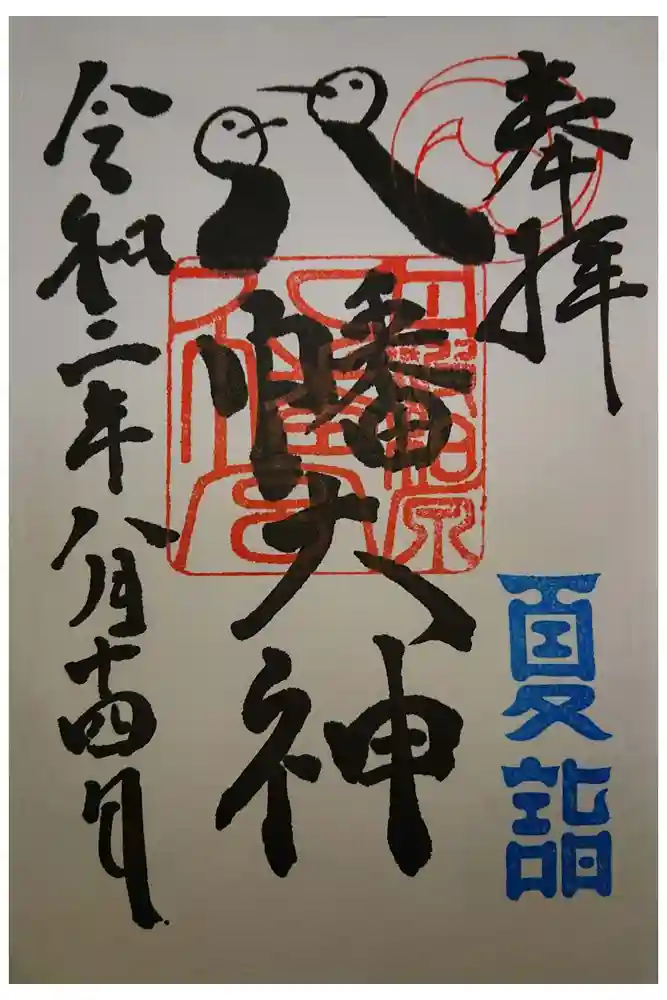 奉拝
八幡大神
令和二年八月十四日
夏詣